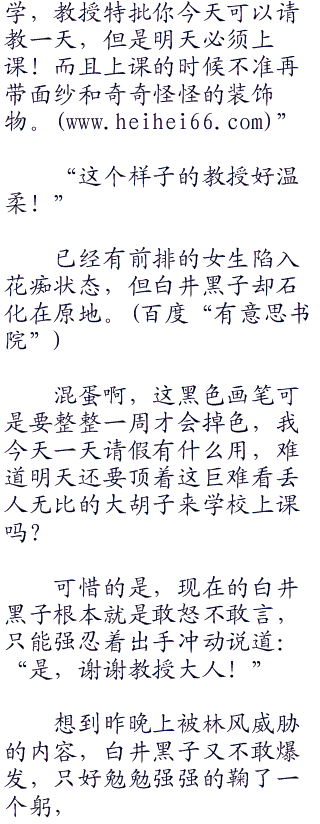 学，教授特批你今天可以请
教一天，但是明天必须上
课！而且上课的时候不准再
带面纱和奇奇怪怪的装饰
物。(www.heihei66.com)”
“这个样子的教授好温
柔！”
已经有前排的女生陷入
花痴状态，但白井黑子却石
化在原地。(百度“有意思书
院”)
混蛋啊，这黑色画笔可
是要整整一周才会掉色，我
今天一天请假有什么用，难
道明天还要顶着这巨难看丢
人无比的大胡子来学校上课
吗？
可惜的是，现在的白井
黑子根本就是敢怒不敢言，
只能强忍着出手冲动说道：
“是，谢谢教授大人！”
想到昨晚上被林风威胁
的内容，白井黑子又不敢爆
发，只好勉勉强强的鞠了一
个躬，